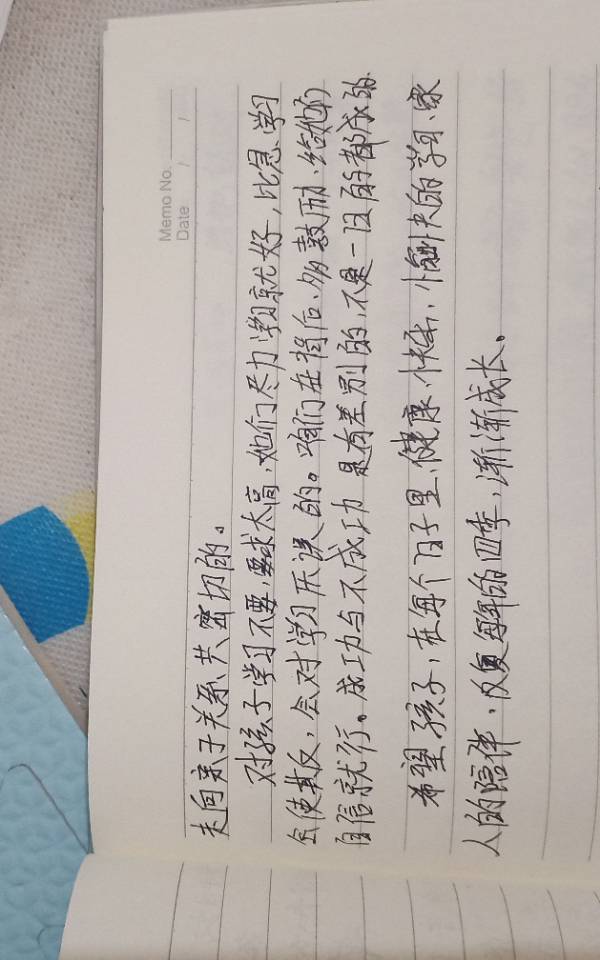 Memo No.
Date / /
走向亲子关系共密切的。
对孩子学习不要要求太高,她们尽力学习就好,比急、学习
会使其反,会对学习厌误的。咱们在背后、多鼓励、给她们
自信就行。成功与不成功是有差别的,不是一日的都成的
希望孩子,在每个日子里、健康、快乐,愉快的学习、家
人的陪伴,反复的四季,渐渐成长。